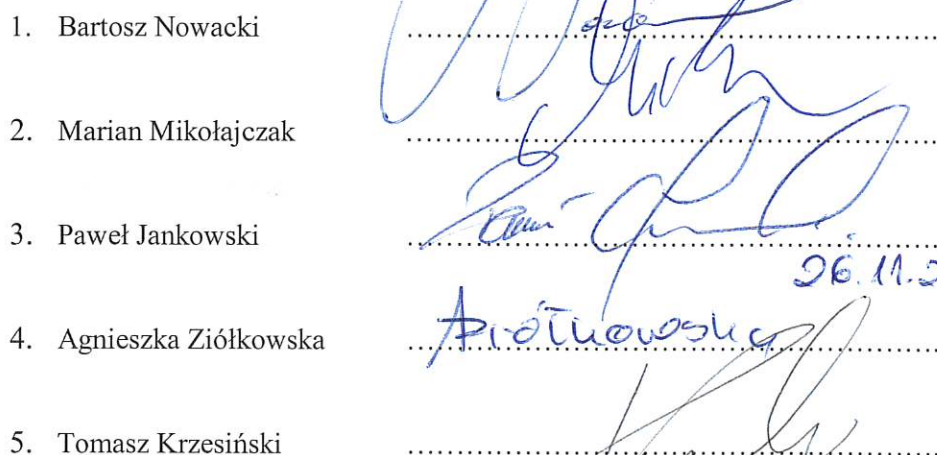 1. Bartosz Nowacki ................................
2. Marian Mikołajczak ................................
3. Paweł Jankowski ................................
26.11.2
4. Agnieszka Ziółkowska ................................
5. Tomasz Krzesiński ................................